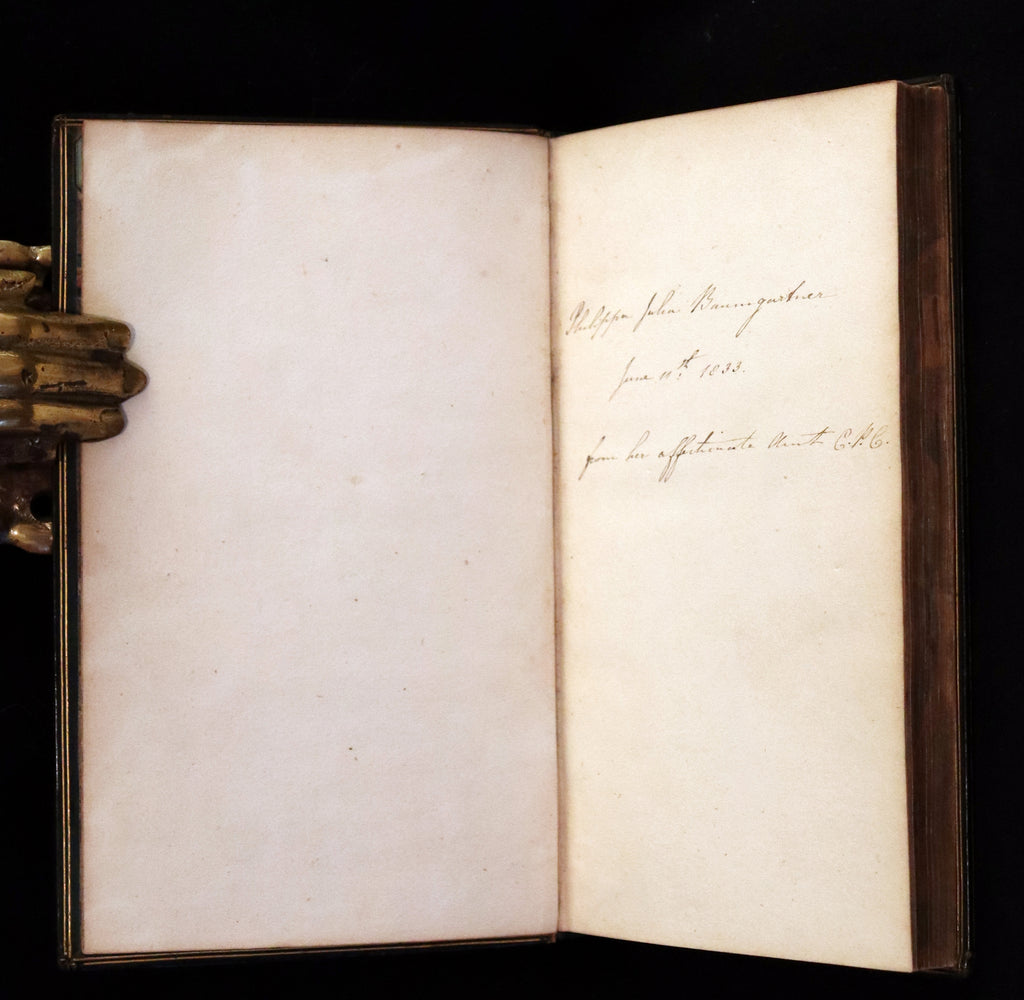 Philippa Julia Baumgartner
June 11th. 1833.
from her affectionate Aunt C.P.C.